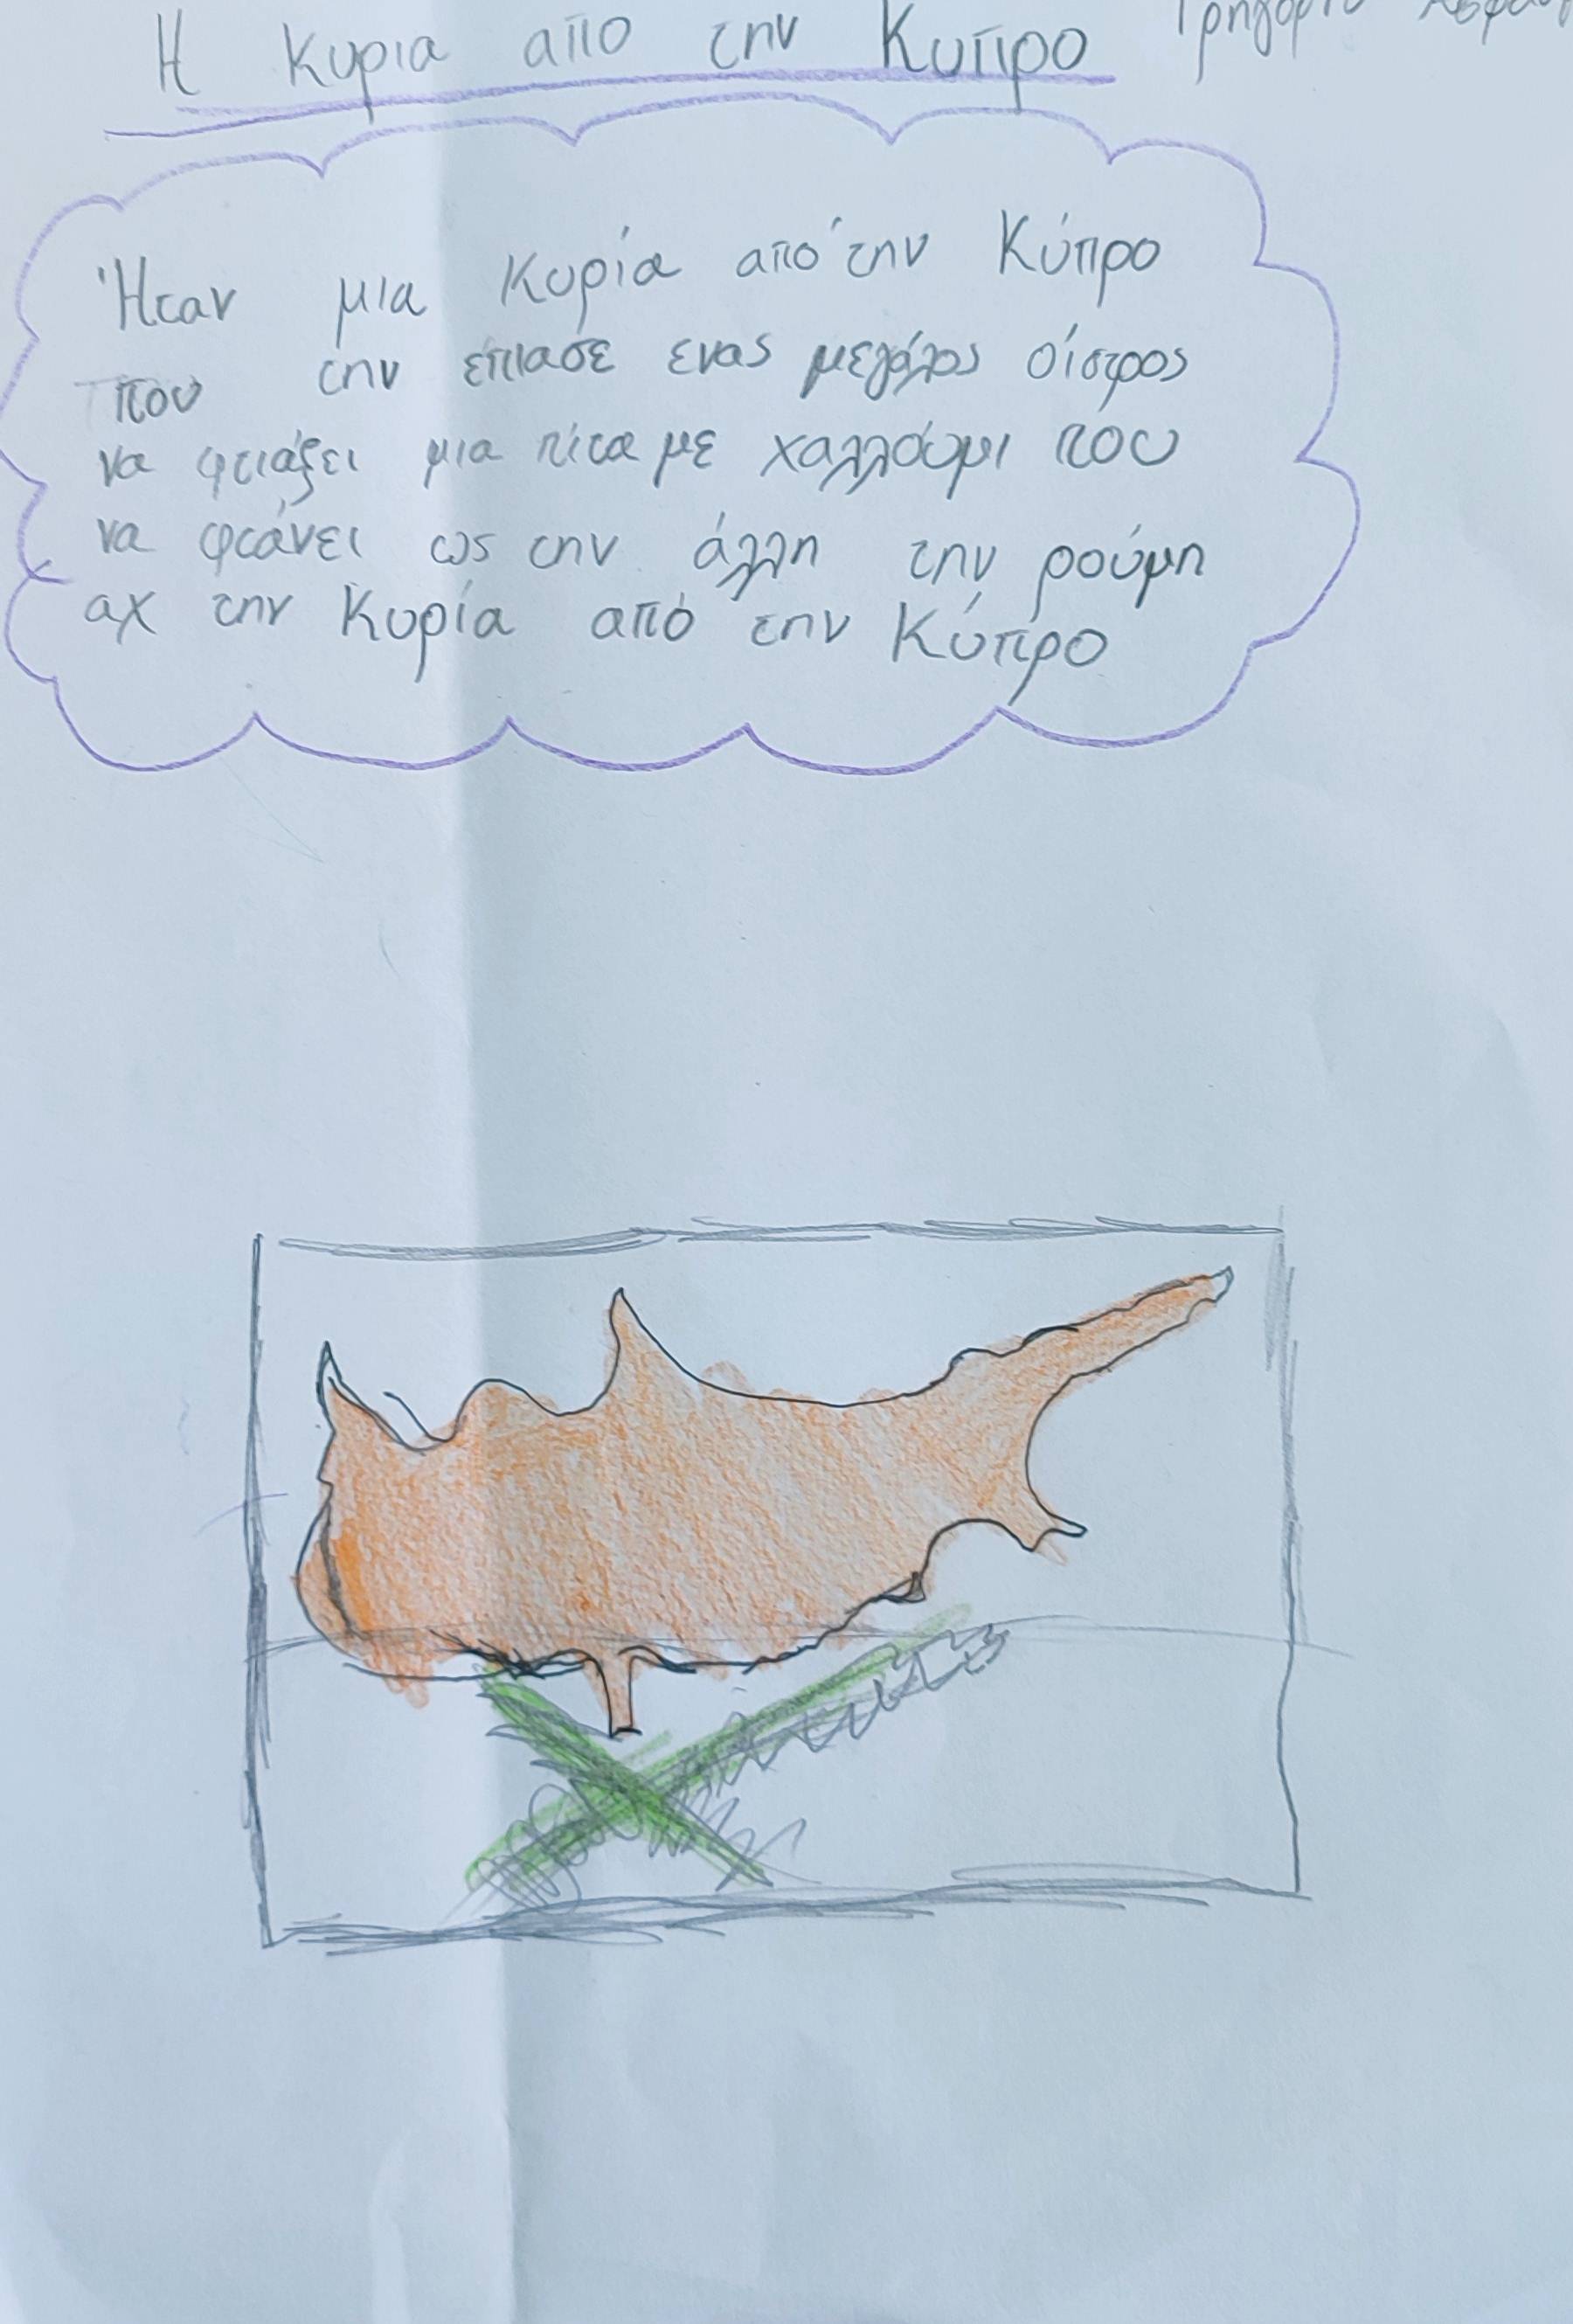 Η κυρια απο την Κυπρο
Ήταν μια Κυρία από την Κύπρο
που την έπιασε ενας μεγάλος οίστρος
να φτιάξει μια πίτα με χαλλούμι που
να φτάνει ως την άλλη την ρούμη
αχ την Κυρία από την Κύπρο